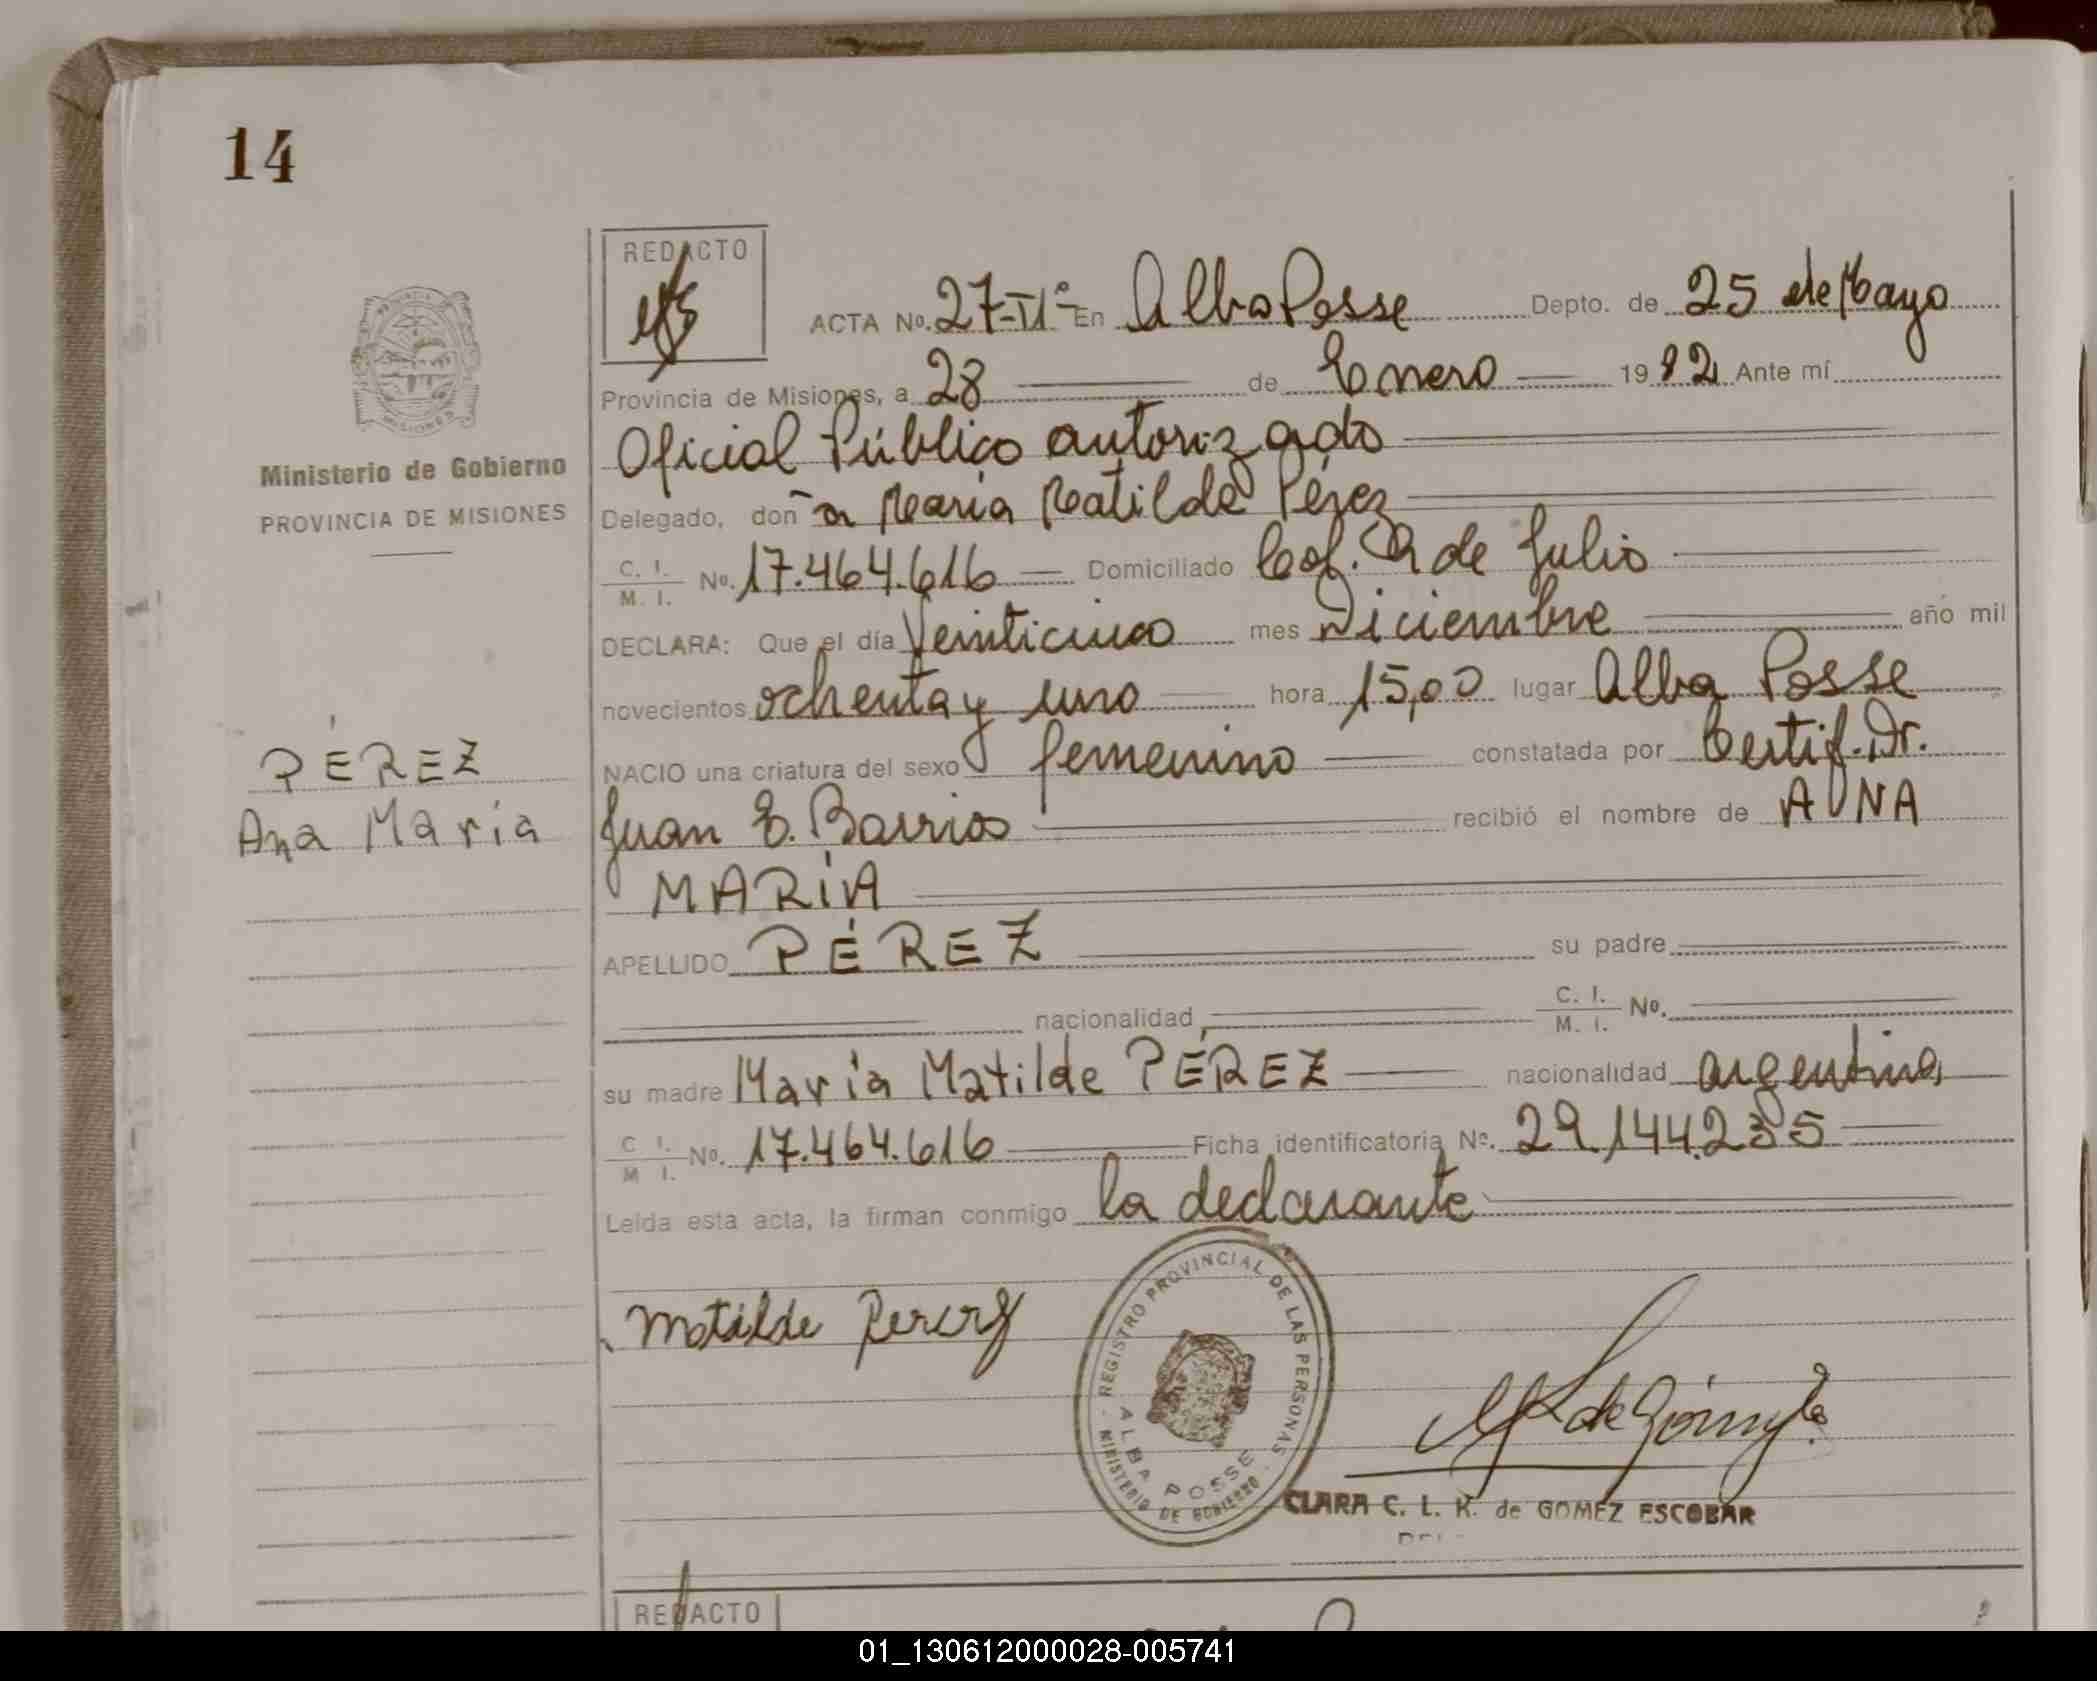 14
REDACTO
ACTA No. 27-II°- En Alba Posse Depto. de 25 de Mayo
Provincia de Misiones, a 28 de Enero 1982 Ante mí
Oficial Público autorizado
Ministerio de Gobierno
PROVINCIA DE MISIONES
Delegado, don a María Matilde Pérez
C. I. M. I. No. 17.464.616 Domiciliado Col. 9 de Julio
DECLARA: Que el día Veinticinco mes Diciembre año mil
novecientos ochenta y uno hora 15,00 lugar Alba Posse
NACIO una criatura del sexo femenino constatada por Certif. Dr.
PÉREZ
Ana María
Juan E. Barrios recibió el nombre de ANA
MARÍA
APELLIDO PÉREZ su padre
nacionalidad C. I. M. I. No.
su madre María Matilde PÉREZ nacionalidad argentina
C I. M I. No. 17.464.616 Ficha identificatoria No. 29.144.235
Leída esta acta, la firman conmigo la declarante
Matilde Perez
REGISTRO PROVINCIAL DE LAS PERSONAS
MINISTERIO DE GOBIERNO
ALBA POSSE
CLARA C. L. K. de GOMEZ ESCOBAR
REDACTO
01_130612000028-005741